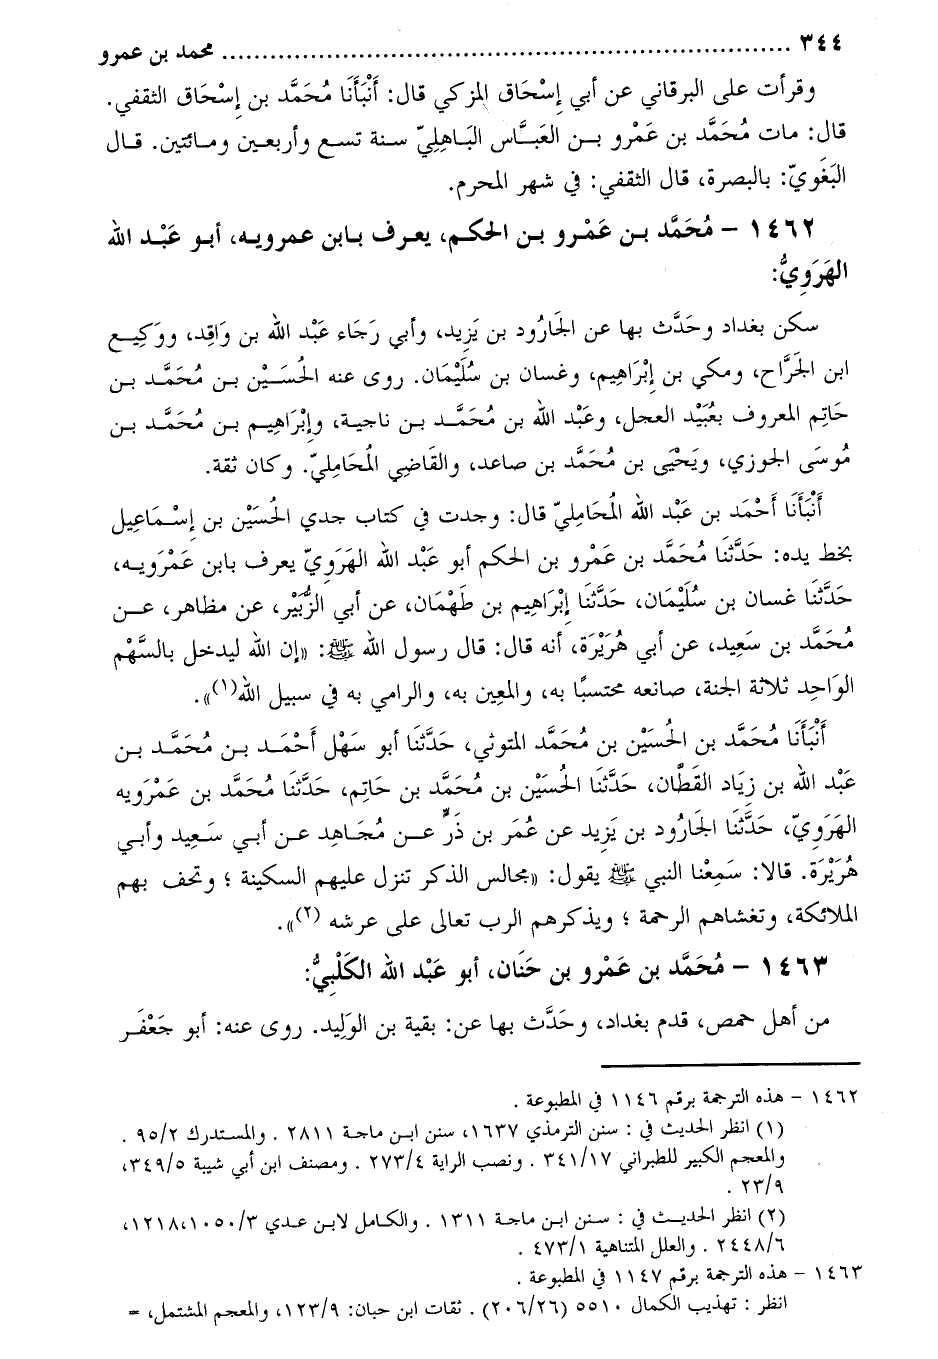 ٣٤٤ ........................................................................ محمد بن عمرو
وقرأت على البرقاني عن أبي إسْحَاق المزكي قال: أَنْبَأَنَا مُحَمَّد بن إسْحَاق الثقفي.
قال: مات مُحَمَّد بن عَمْرو بـن العَبَّاس البَاهِلِيّ سـنة تسـع وأربعـين ومـائتين. قـال
البَغَويّ: بالبصرة، قال الثقفي: في شهر المحرم.
١٤٦٢ – مُحَمَّد بـن عَمْـرو بـن الحكـم، يعـرف بـابن عمرويـه، أبـو عَبْـد الله
الهَرَوِيُّ:
سكن بغداد وحَدَّث بها عن الجَارُود بن يَزِيد، وأبي رَجَاء عَبْد الله بن وَاقِد، ووَكِيـع
ابن الجَرَّاح، ومكي بن إبْرَاهِيم، وغسان بن سُلَيْمَان. روى عنه الحُسَـيْن بـن مُحَمَّـد بـن
حَاتِم المعروف بعُبَيْد العجل، وعَبْد الله بن مُحَمَّـد بـن ناجيـة، وإبْرَاهِيـم بـن مُحَمَّـد بـن
مُوسَى الجوزي، ويَحْيَى بن مُحَمَّد بن صاعد، والقَاضِي المُحَامِليّ. وكان ثقة.
أَنْبَأَنَا أَحْمَد بن عَبْد الله المُحَامِليّ قال: وجدت في كتاب جدي الحُسَيْن بن إسْـمَاعِيل
بخط يده: حَدَّثَنَا مُحَمَّد بن عَمْرو بن الحكم أبو عَبْد الله الهَرَويّ يعرف بابن عَمْرَويـه،
حَدَّثَنَا غسان بن سُلَيْمَان، حَدَّثَنَا إبْرَاهِيم بن طَهْمَان، عن أبي الزُّبَيْر، عن مظاهر، عـن
مُحَمَّد بن سَعِيد، عن أبي هُرَيْرَة، أنه قال: قال رسول الله ﷺ: «إن الله ليدخل بالسَّهْم
الوَاحِد ثلاثة الجنة، صانعه محتسبًا به، والمعِين به، والرامي به في سبيل الله(١)».
أَنْبَأَنَا مُحَمَّد بن الحُسَيْن بن مُحَمَّد المتوثي، حَدَّثَنَا أبو سَهْل أَحْمَـد بـن مُحَمَّـد بـن
عَبْد الله بن زِيَاد القَطَّان، حَدَّثَنَا الحُسَيْن بن مُحَمَّد بن حَاتِم، حَدَّثَنَا مُحَمَّد بن عَمْرَويه
الهَرَويّ، حَدَّثَنَا الجَارُود بن يَزِيد عن عُمَر بن ذَرٍّ عـن مُجَـاهِد عـن أبـي سَـعِيد وأبـي
هُرَيْرَة. قالا: سَمِعْنا النبي ﷺ يقول: «مجالس الذكر تنزل عليهم السكينة ؛ وتحف بهم
الملائكة، وتغشاهم الرحمة ؛ ويذكرهم الرب تعالى على عرشه (٢)».
١٤٦٣ – مُحَمَّد بن عَمْرو بن حَنَان، أبو عَبْد الله الكَلْبِيُّ:
من أهل حمص، قدم بغداد، وحَدَّث بها عن: بقية بن الوَلِيد. روى عنه: أبو جَعْفَـر
١٤٦٢ – هذه الترجمة برقم ١١٤٦ في المطبوعة .
(١) انظر الحديث في : سنن الترمذي ١٦٣٧، سنن ابـن ماجـة ٢٨١١ . والمسـتدرك ٩٥/٢ .
والمعجم الكبير للطبراني ٣٤١/١٧ . ونصب الراية ٢٧٣/٤ . ومصنف ابن أبي شيبة ٣٤٩/٥،
٢٣/٩ .
(٢) انظر الحديـث في : سـنن ابـن ماجـة ١٣١١ . والكـامل لابـن عـدي ١٠٥٠/٣، ١٢١٨،
٢٤٤٨/٦ . والعلل المتناهية ٤٧٣/١ .
١٤٦٣ – هذه الترجمة برقم ١١٤٧ في المطبوعة .
انظر : تهذيب الكمال ٥٥١٠ (٢٠٦/٢٦) . ثقات ابن حبان: ١٢٣/٩، والمعجم المشتمل، =